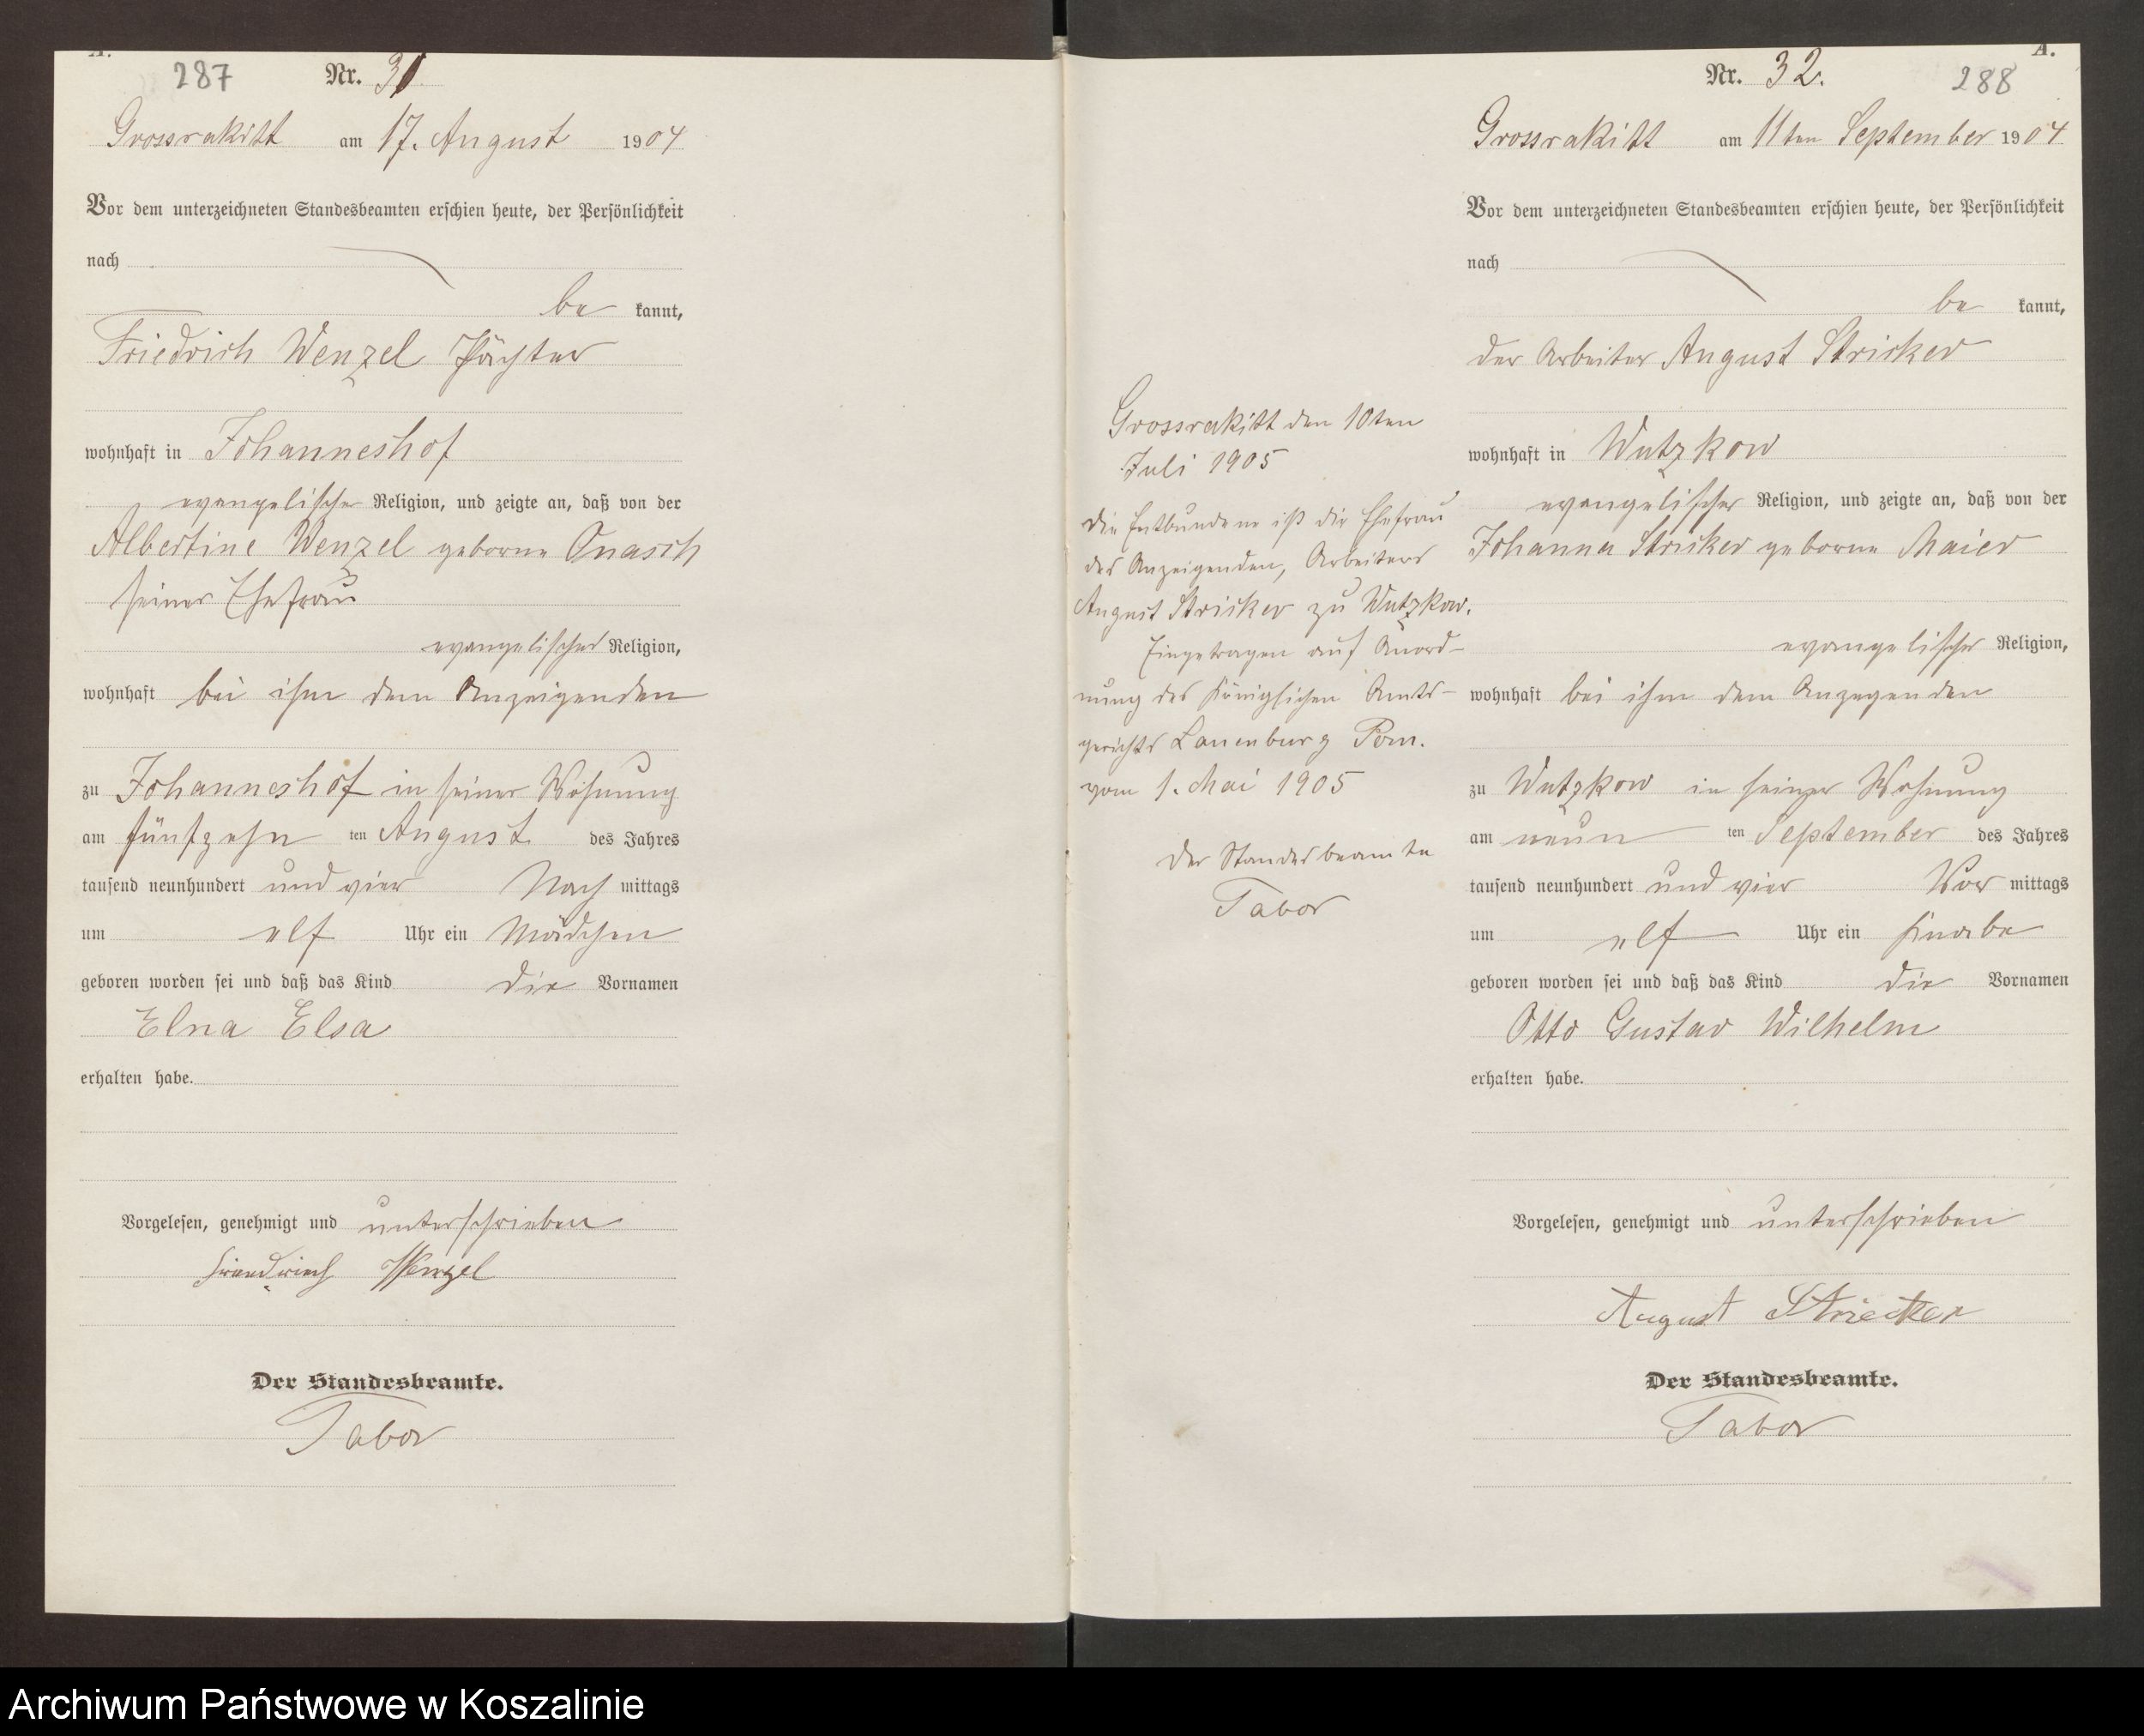 A.
287
Nr. 31.
Grossrakitt am 17. August 1904
Vor dem unterzeichneten Standesbeamten erschien heute, der Persönlichkeit
nach
be kannt,
Friedrich Wenzel Pächter
wohnhaft in Johanneshof
evangelischer Religion, und zeigte an, daß von der
Albertine Wenzel geborne Onasch
seiner Ehefrau
evangelischer Religion,
wohnhaft bei ihm dem Anzeigenden
zu Johanneshof in seiner Wohnung
am fünfzehn ten August des Jahres
tausend neunhundert und vier Nach mittags
um elf Uhr ein Mädchen
geboren worden sei und daß das Kind die Vornamen
Elna Elsa
erhalten habe.
Vorgelesen, genehmigt und unterschrieben
Wenzel
Der Standesbeamte.
Tabor
Grossrakitt den 10ten
Juli 1905
Die Entbundene ist die Ehefrau
des Anzeigenden, Arbeiters
August Stricker zu Wutzkow.
Eingetragen auf Anord-
nung des Königlichen Amts-
gerichts Lauenburg Pom.
vom 1. Mai 1905
Der Standesbeamte
Tabor
A.
Nr. 32.
288
Grossrakitt am 11ten September 1904
Vor dem unterzeichneten Standesbeamten erschien heute, der Persönlichkeit
nach
be kannt,
der Arbeiter August Stricker
wohnhaft in Wutzkow
evangelischer Religion, und zeigte an, daß von der
Johanna Stricker geborne Maier
evangelischer Religion,
wohnhaft bei ihm dem Anzegenden
zu Wutzkow in seiner Wohnung
am neun ten September des Jahres
tausend neunhundert und vier Vor mittags
um elf Uhr ein Knabe
geboren worden sei und daß das Kind die Vornamen
Otto Gustav Wilhelm
erhalten habe.
Vorgelesen, genehmigt und unterschrieben
August Striecker
Der Standesbeamte.
Tabor
Archiwum Państwowe w Koszalinie